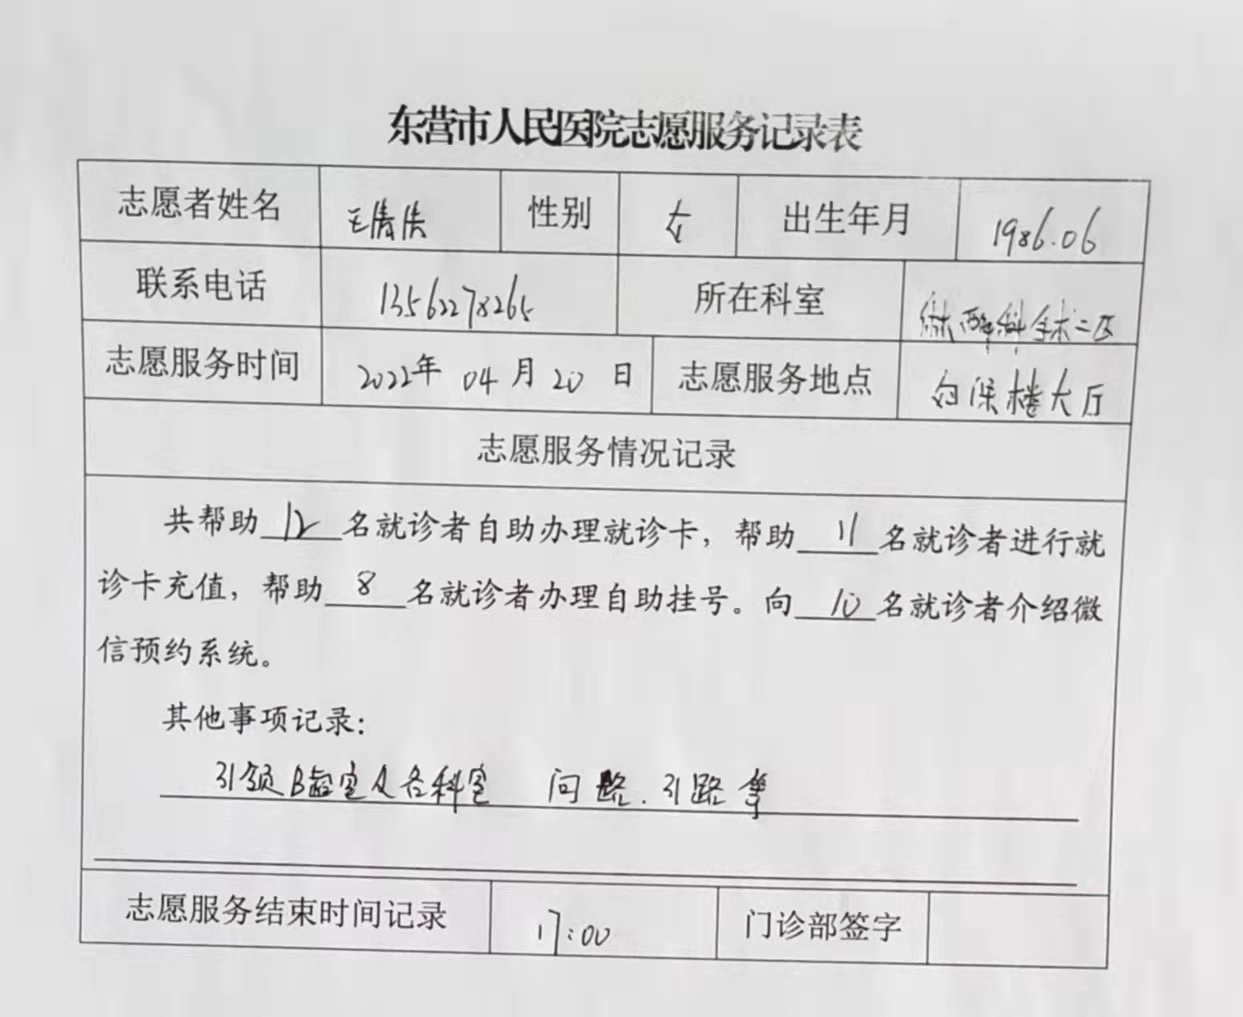 东营市人民医院志愿服务记录表
志愿者姓名 王 性别 女 出生年月 1986.06
联系电话 13562278265 所在科室 科 二区
志愿服务时间 2022年 04 月 20 日 志愿服务地点 楼大厅
志愿服务情况记录
共帮助12名就诊者自助办理就诊卡，帮助11名就诊者进行就
诊卡充值，帮助8名就诊者办理自助挂号。向10名就诊者介绍微
信预约系统。
其他事项记录：
引领B超室及各科室 问路.引路等
志愿服务结束时间记录 17:00 门诊部签字